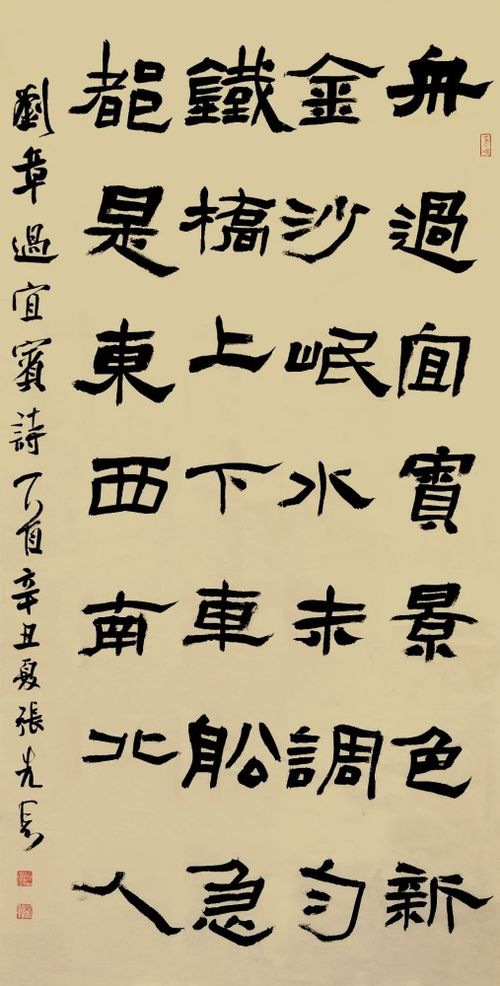 舟過宜賓景色新
金沙岷水未調勻
鐵橋上下車船急
都是東西南北人
劉章過宜賓詩一首辛丑夏張先長